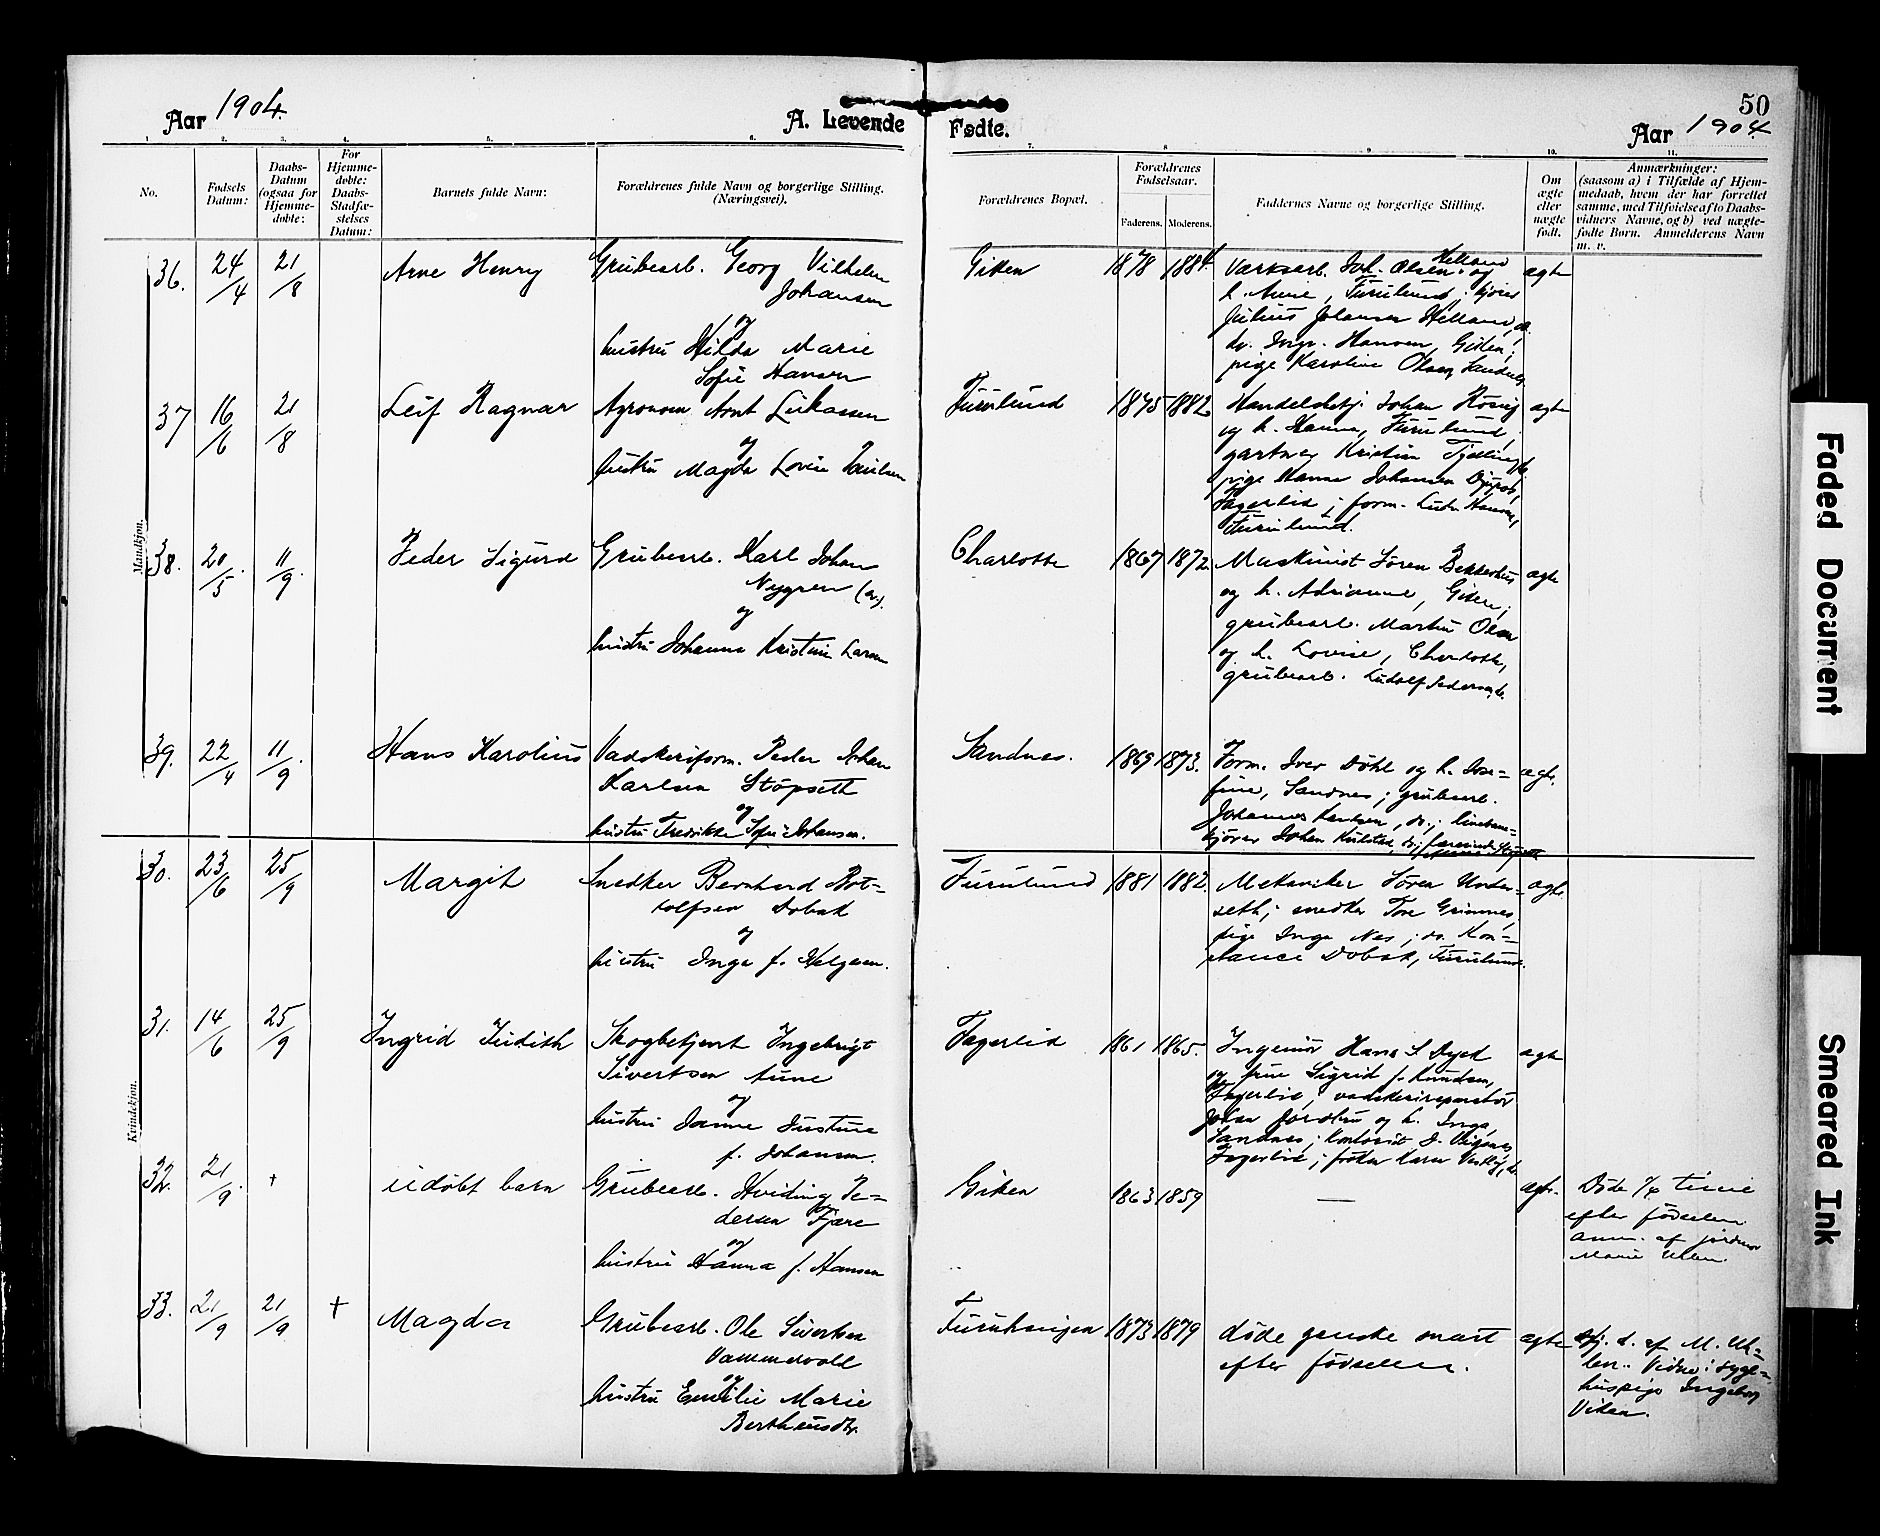 Aar 1904.
A. Levende
Fødte.
50
Aar 1904
1. 2. 3. 4. 5. 6. 7. 8. 9. 10. 11.
No.
Fødsels
Datum:
Daabs-
Datum
(ogsaa for
Hjemme-
døbte:
For
Hjemme-
døbte:
Daabs-
Stadfæ-
stelses
Datum:
Barnets fulde Navn:
Forældrenes fulde Navn og borgerlige Stilling.
(Næringsvei).
Forældrenes Bopæl.
Forældrenes
Fødselsaar.
Faderens. Moderens.
Faddernes Navne og borgerlige Stilling.
Om
ægte
eller
uægte
født.
Anmærkninger:
(saasom a) i Tilfælde af Hjem-
medaab, hvem der har forrettet
samme, med Tilføielse af to Daabs-
vidners Navne, og b) ved uægte-
fødte Børn. Anmelderens Navn
m. v.
Mandkjøn.
36. 24/4 21/8 Arne Henry Grubearb. Georg Vilhelm
Johansen
og
hustru Hilda Marie
Sofie Hansen
Giken 1878 1884. Værksarb. Joh. Olsen Helland og
h. Anne, Furulund; kjører
Julius Johansen Helland, do.
do. Ingv. Hansen, Giken;
pige Karoline Olsen, Sandnes.
ægte
37 16/6 21/8 Leif Ragnar Agronom Arnt Lukassen
og
hustru Magda Lovise Paulsen
Furulund 1875 1882. Handelsbetj. Johan
og h. Hanna, Furulund,
gartner Kristian
pige Hanna Johansen
Fagerlid; form.
Furulund.
ægte
38. 20/5 11/9. Peder Sigurd Grubearb. Karl Johan
Nygren (sv.).
og
hustru Johanna Kristine Larsen
Charlotte 1867 1872. Maskinist Søren Bekkeshus
og h. Adrianne, Giken;
grubearb. Martin Olsen
og h. Lovise, Charlotte,
grubearb. Ludolf Pedersen, do.
ægte
39. 22/4 11/9. Hans Karolius Vadskeriform. Peder Johan
Karlsen Støpseth
og
hustru Fredrikke Sofie Johansen.
Sandnes. 1869 1873. Form. Iver Døhl og h. Jose-
fine, Sandnes; grubearb.
Johannes Karlsen, do.; linebane-
kjører Johan Kulstad, do;
ægte.
Kvindekjøn.
30. 23/6 25/9 Margit Snedker Bernhard Bot-
tolfsen Dobak
og
hustru Inga f. Helgesen.
Furulund 1881 1882. Mekaniker Søren Under-
seth; snedker Tore Grimnes,
pige Inga Nes; do. Kon-
stance Dobak, Furulund.
ægte.
31. 14/6 25/9 Ingrid Judith Skogbetjent Ingebrigt
Sivertsen Aune
og
hustru Janna Justine
f. Johansen.
Fagerlid 1861 1865. Ingeniør Hans S. Dyed
og frue Sigrid f. Knudsen,
Fagerlid, vadskerireparatør
Johan og h. Inga,
Sandnes; Kontorist
Fagerlid; frøken Karen
ægte
32. 21/9. + udøbt barn Grubearb. Hviding Pe-
dersen Fjære
og
hustru Hanna f. Hansen
Giken 1863 1859 — ægte. Døde 1/4 time
efter fødselen
anm. af jordmor
Marie Uhlen.
33. 21/9 21/9. + Magda Grubearb. Ole Sivertsen
Vammervold
og
hustru Emelie Marie
Bertheusdtr.
Furuhaugen 1873 1879 døde ganske snart
efter fødselen.
ægte Hj. d. af M. Uh-
len. Vidne: syge-
huspige Ingeborg
Viken.
Faded Document
Smeared Ink